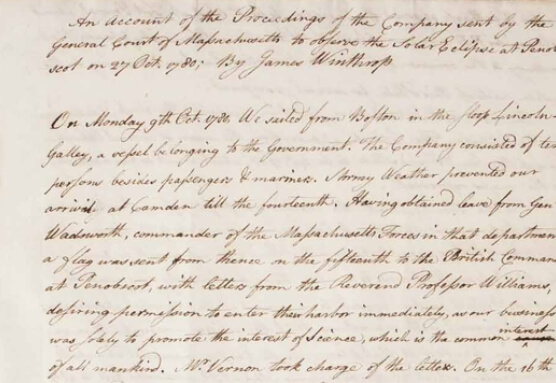 An account of the Proceedings of the Company sent by the
General Court of Massachusetts to observe the Solar Eclipse at Penob
scot on 27 Oct. 1780; By James Winthrop
On Monday 9th Oct. 1780. We sailed from Boston in the sloop Lincoln-
Galley, a vessel belonging to the Government. The Company consisted of ten
persons besides passengers & mariners. Stormy Weather prevented our
arrival at Camden till the fourteenth. Having obtained leave from Gen
Wadsworth, commander of the Massachusetts Forces in that department
a flag was sent from thence on the fifteenth to the British Command
at Penobscot, with letters from the Reverend Professor Williams,
desiring permission to enter their harbor immediately, as our business
was solely to promote the interest of Science, which is the common interest
of all mankind. Mr. Vernon took charge of the letter. On the 16th